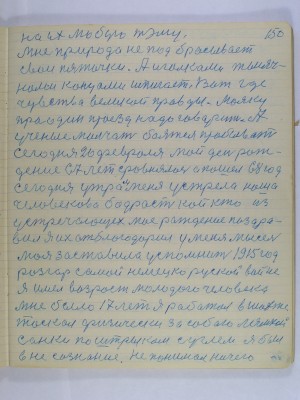 150
на их любую тему.
мне природа не под брасывает
свои пяточки. А иголками
колет где
чувства великой правды.
правдин проезд надоговорить. А
учение молчат боятся пробивают
сегодня 26 февроля мой ден рож-
дение 67 лет сровнялос а пошел 68 год
сегодня утра меня устрела наша
человекова бодраст кой кто из
устречающех мое раждение поздра-
вил я их отблогодорил у меня мысел
моя заставила успомнит 1915 год
розгар самой немецко руской войне
я имел возрост молодого человека
мне было 17 лет я работал в шахте
тоскал физически за собаю
санки по штрекам с углем я был
в не сознание, не понимал ничего